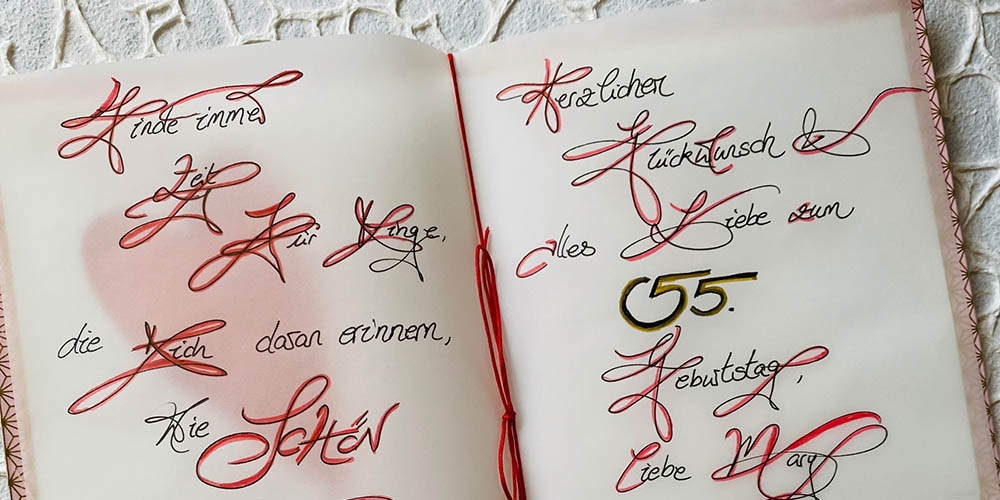 Finde immer
Zeit
Für Dinge,
die Dich daran erinnern,
Wie SCHÖN
Herzlichen
Glückwunsch &
alles Liebe zum
55.
Geburtstag,
Liebe Mary